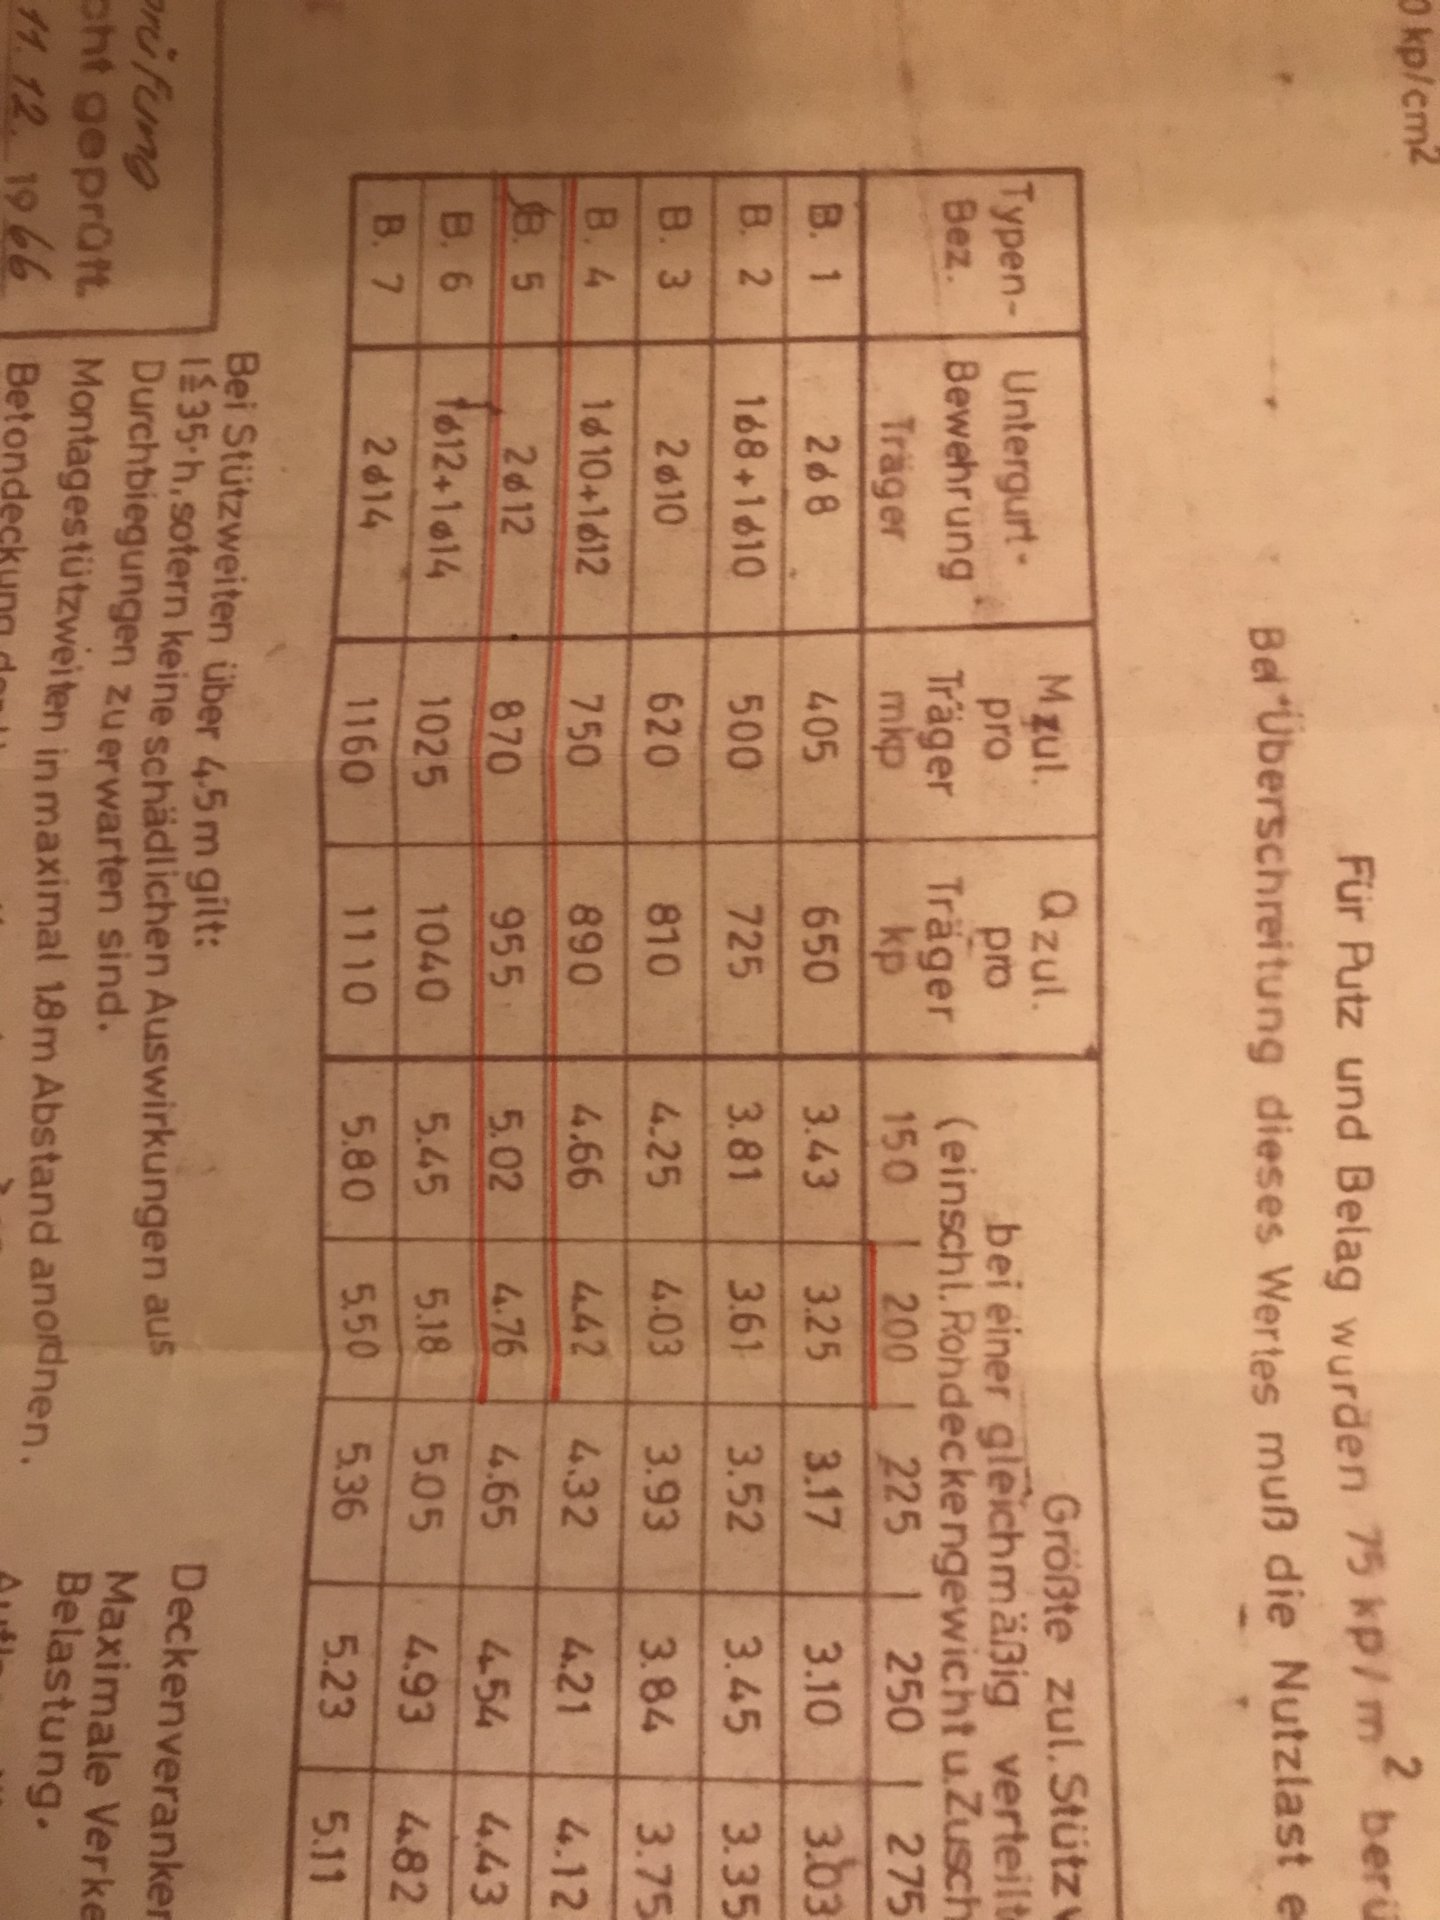 0 kp/cm²
Für Putz und Belag wurden 75 kp/m² berü
Bei Überschreitung dieses Wertes muß die Nutzlast e
Typen- Untergurt- Mzul. Qzul. Größte zul. Stütz
Bez. Bewehrung pro pro bei einer gleichmäßig verteilt
Träger Träger Träger (einschl. Rohdeckengewicht u. Zusch
mkp kp 150 200 225 250 275
B. 1 2ø8 405 650 3.43 3.25 3.17 3.10 3.03
B. 2 1ø8+1ø10 500 725 3.81 3.61 3.52 3.45 3.35
B. 3 2ø10 620 810 4.25 4.03 3.93 3.84 3.75
B. 4 1ø10+1ø12 750 890 4.66 4.42 4.32 4.21 4.12
B. 5 2ø12 870 955 5.02 4.76 4.65 4.54 4.43
B. 6 1ø12+1ø14 1025 1040 5.45 5.18 5.05 4.93 4.82
B. 7 2ø14 1160 1110 5.80 5.50 5.36 5.23 5.11
Bei Stützweiten über 4,5 m gilt:
l≦35·h, sofern keine schädlichen Auswirkungen aus
Durchbiegungen zu erwarten sind.
Montagestützweiten in maximal 1,8 m Abstand anordnen.
Betondeckung
Deckenveranker
Maximale Verke
Belastung.
cht geprüft.
11. 12. 1966